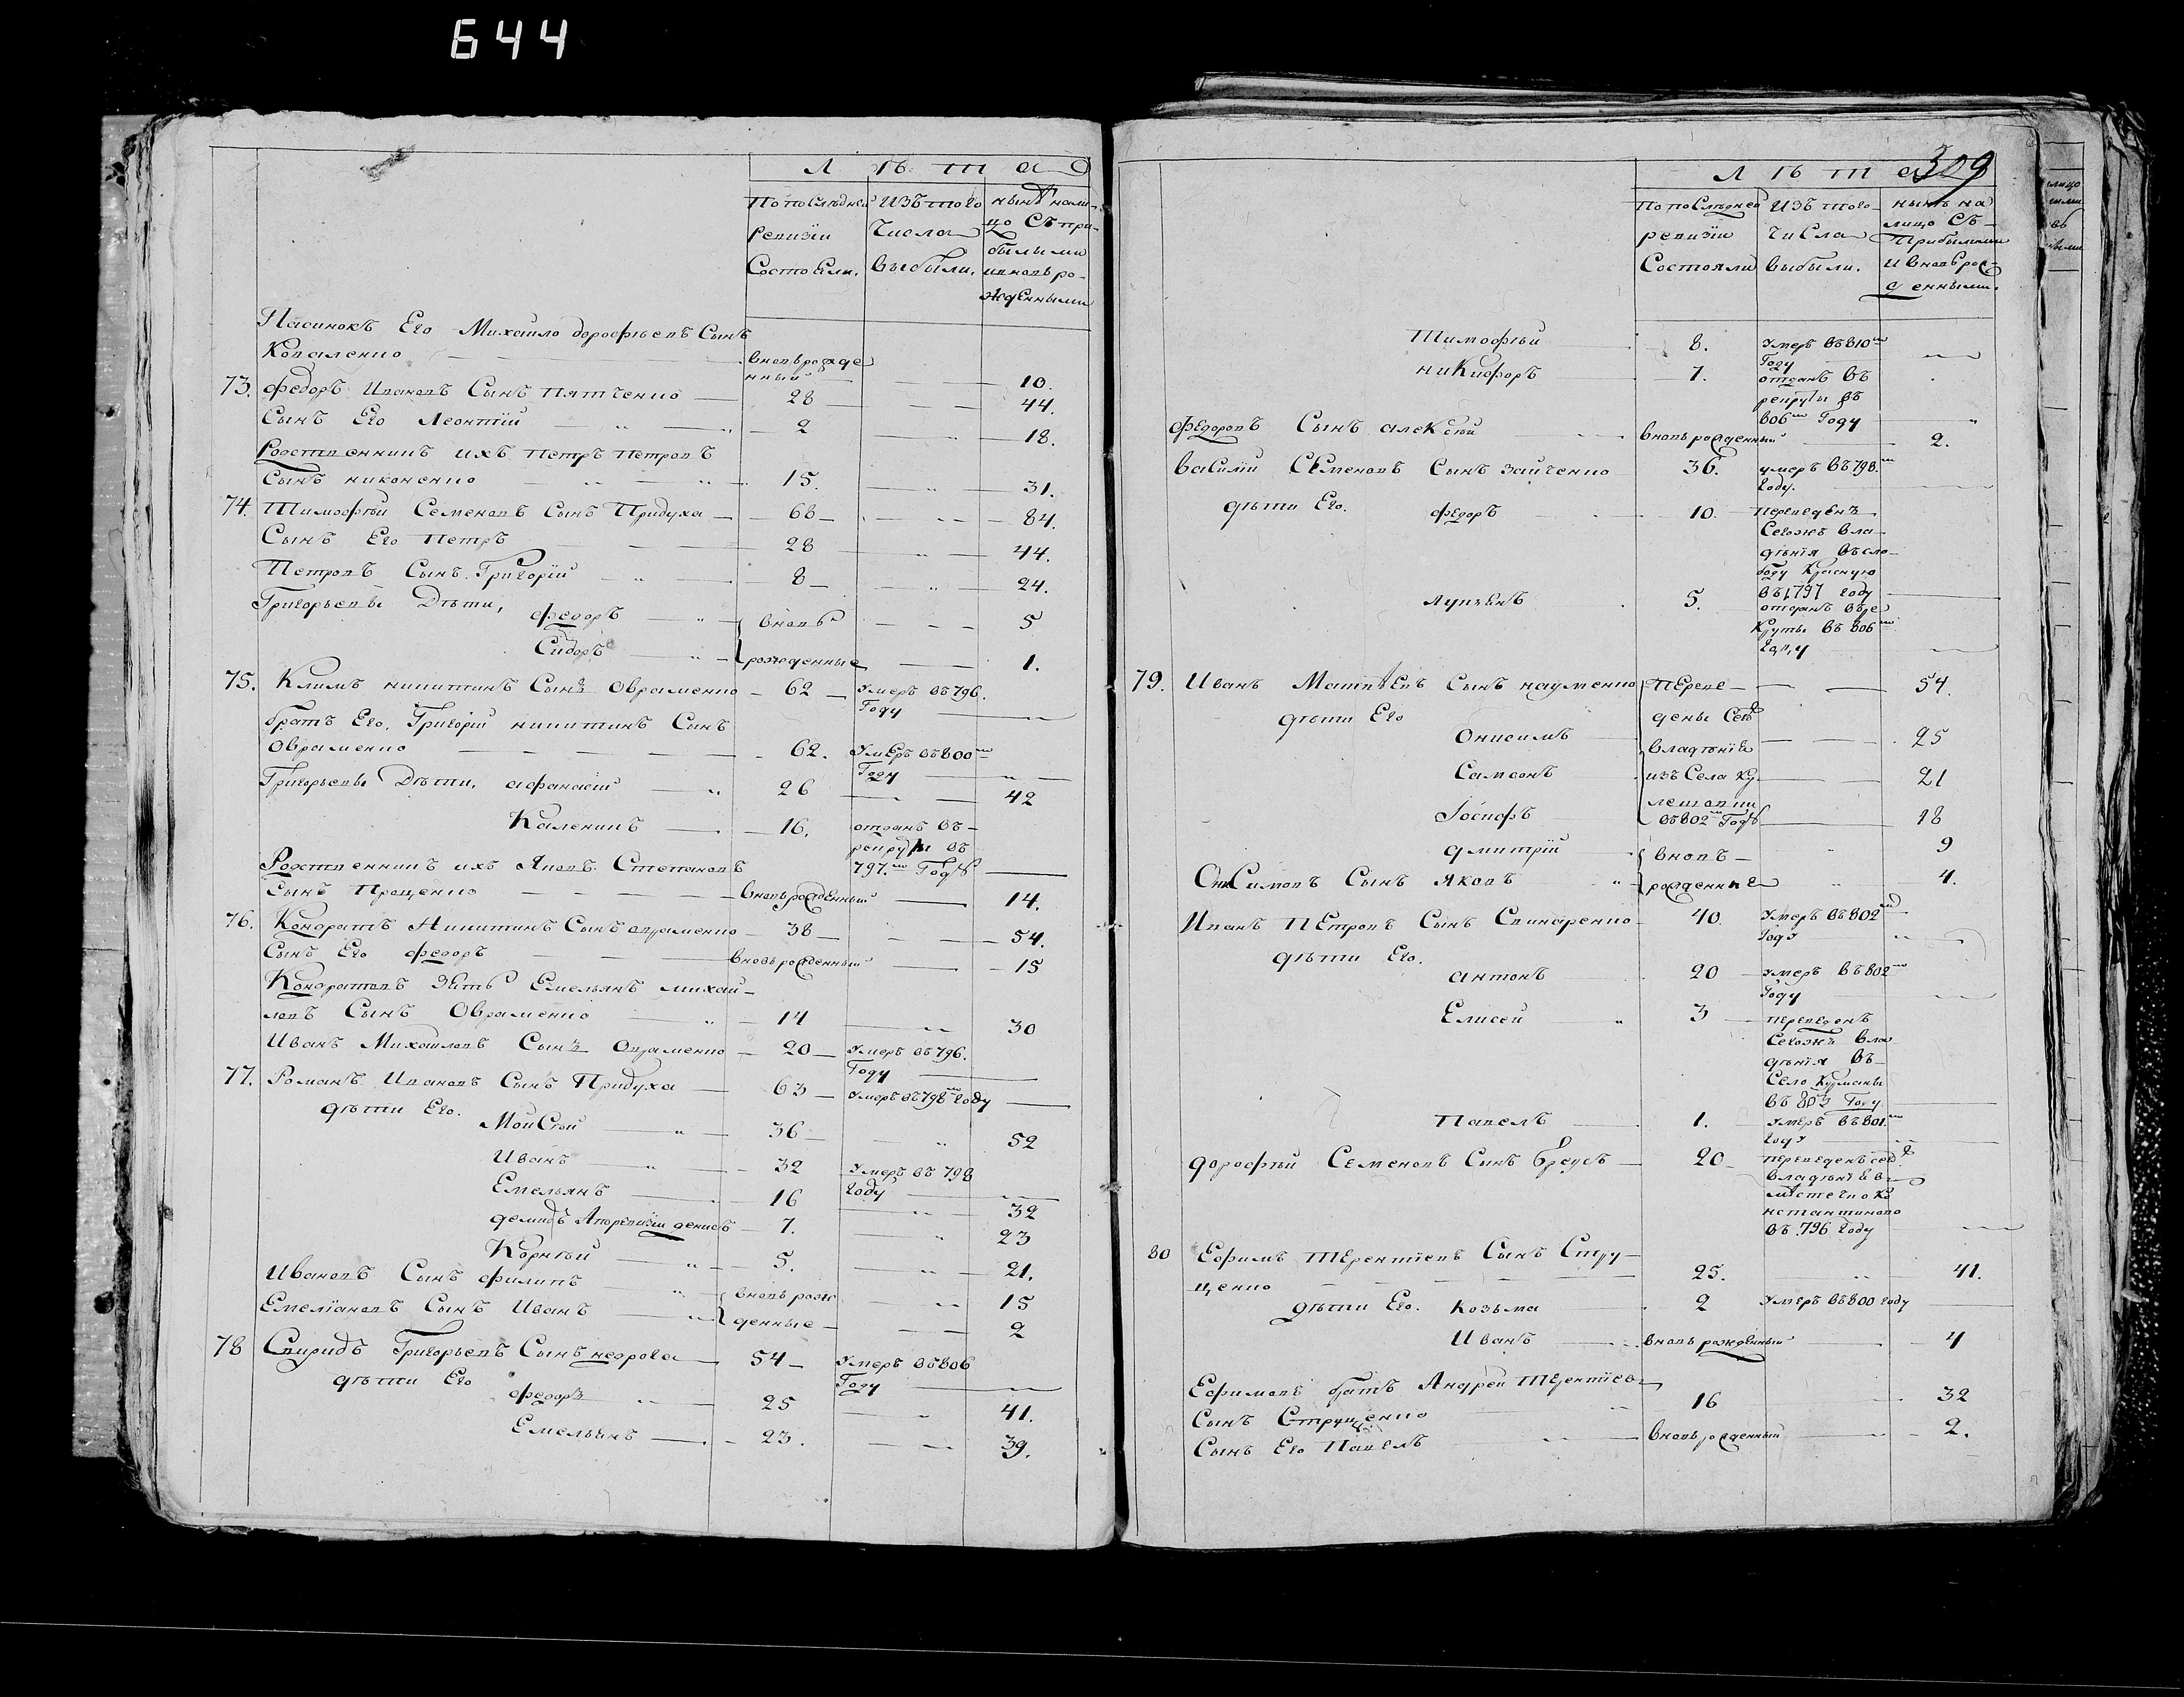 644
Л ѣ т а
По последней Изъ того нынѣ нали-
Ревизіи Числа цо Съ при-
былыми
Состояли. выбыли. ивновь ро-
жденными
Пасинокъ Его Михайло дорофѣевъ Сынъ
Коваленко вновьрожде
нный 10.
73. федоръ Ивановъ Сынъ Пятченко 28 44.
Сынъ Его Леонтій 2 18.
Родственникъ ихъ Петръ Петровъ
Сынъ никоненко 15. 31.
74. Тимофѣй Семеновъ Сынъ Придуха 68 84.
Сынъ Его Петръ 28 44.
Петровъ Сынъ Григорій 8 24.
Григорьевы Дѣти, федоръ вновь 5
Сидоръ рожденные 1.
75. Климъ никитинъ Сынъ Овраменко 62 Умеръ въ 796.
Году
братъ Его, Григорій никитинъ Сынъ
Овраменко 62. Умеръ въ 800м
Году
Григорьевы Дѣти, афанасій 26 42
Каленикъ 16. отданъ въ
рекруты въ
797.м Годѣ
Родственникъ ихъ Яковъ Степановъ
Сынъ Проценко вновьрожденный 14.
76. Кондратъ Никитинъ Сынъ авраменко 38 54.
Сынъ Его федоръ вновьрожденный 15
Кондратовъ Зять Емельянъ михай-
ловъ Сынъ Овраменко 14 30
Иванъ Михайловъ Сынъ Овраменко 20 Умеръ въ 796.
Году
77. Романъ Ивановъ Сынъ Придуха 63 Умеръ въ 798м Году
дѣти Его. Мойсѣй 36 52
Иванъ 32 Умеръ въ 798
Году
Емельянъ 16 32
демидъ Апоревизіи денисъ 7. 23
Корнѣй 5. 21.
Ивановъ Сынъ филипъ вновьрож 15
Емеліановъ Сынъ Иванъ денные 2
78 Спиридъ Григорьевъ Сынъ 54 Умеръ въ 806
Году
дѣти Его федоръ 25 41.
Емельянъ 23. 39.
309
Л ѣ т а
По последней Изъ того нынѣ на
ревизіи Числа лицо Съ
Прибылыми
Состояли выбыли. и вновь рож
денными.
Тимофѣй 8. Умеръ въ 810м
Году
никифоръ 7. отданъ въ
рекруты въ
806м Году
Федоровъ Сынъ алексѣй вновьрожденный 2.
василій Семеновъ Сынъ зайченко 36. умеръ въ 798.м
Году.
дѣти Его. федоръ 10. переведенъ
Сегожъ вла
дѣнія въ сло-
боду Красную
въ 1797 году
лукъянъ 5. отданъ въ ре
круты въ 806м
году
79. Иванъ Матвѣевъ Сынъ науменко переве 54.
дѣти Его дены Сегѡ
Онисимъ владѣнія 25
Самсонъ изъ Села 21
Іосифъ въ 802м Годѣ 18
дмитрій вновь 9
Онисимовъ Сынъ яковъ рожденные 4.
Иванъ Петровъ Сынъ Свинаренко 40. Умеръ въ 802м
Году
дѣти Его.
антонъ 20 умеръ въ 802м
Году
Елисей 3 переведенъ
Сегожъ вла
дѣнія въ
Село Курманы
въ 803 Году
Павелъ 1. умеръ въ 801.м
Году
дорофѣй Семеновъ Сынъ брусъ 20 переведенъ сегѡ
владѣнія в
мѣстечко Ко
нстантиново
въ 796 году
80 Ефимъ Терентіевъ Сынъ Стру-
ценко 25. 41.
дѣти Его. козьма 2 умеръ въ 800 году
Иванъ вновь рожденный 4
Ефимовъ братъ Андрей Терентіев
Сынъ Струценко 16 32
Сынъ Его Павелъ вновьрожденный 2.